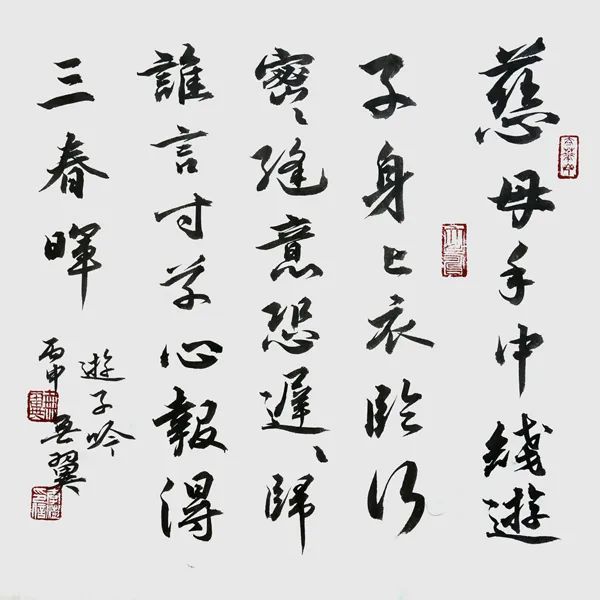 慈母手中綫遊
子身上衣臨行
密〻縫意恐遲〻歸
誰言寸草心報得
三春暉
遊子吟
丙申翼